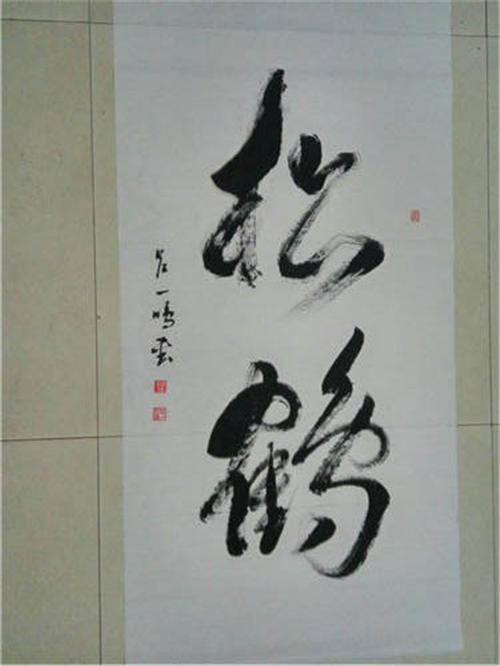 松鹤
一鸣书